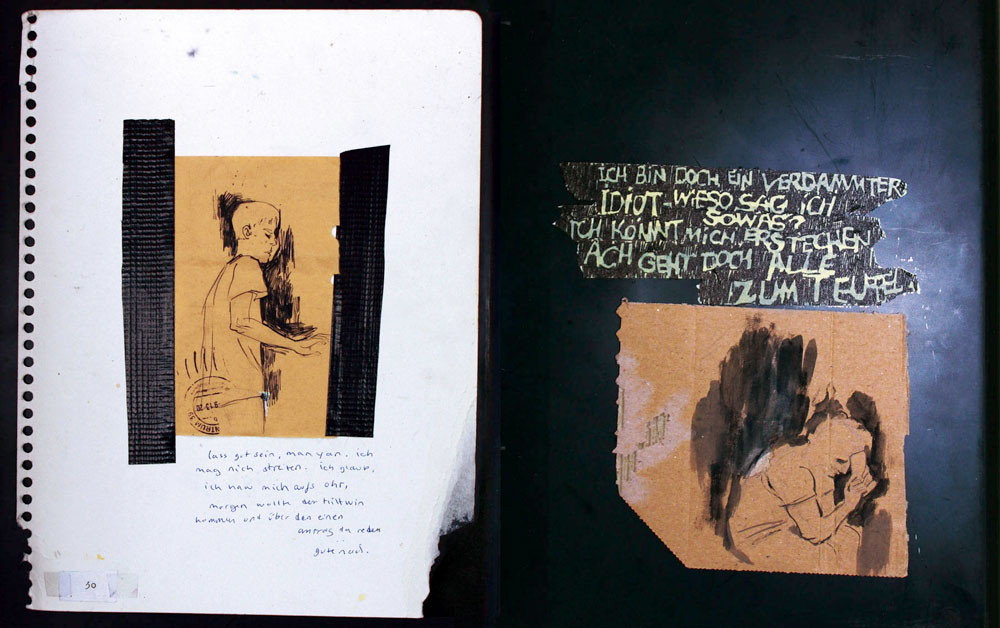 lass gut sein, man yan. ich
mag nich streiten. ich glaub,
ich haw mich aufs ohr,
morgen wollte der
kommen und über den einen
antrag da reden
gute nach.
30
ICH BIN DOCH EIN VERDAMMTER
IDIOT-WIESO SAG ICH
SOWAS?
ICH KÖNNT MICH ERSTECHEN
ACH GEHT DOCH ALLE
ZUM TEUFEL